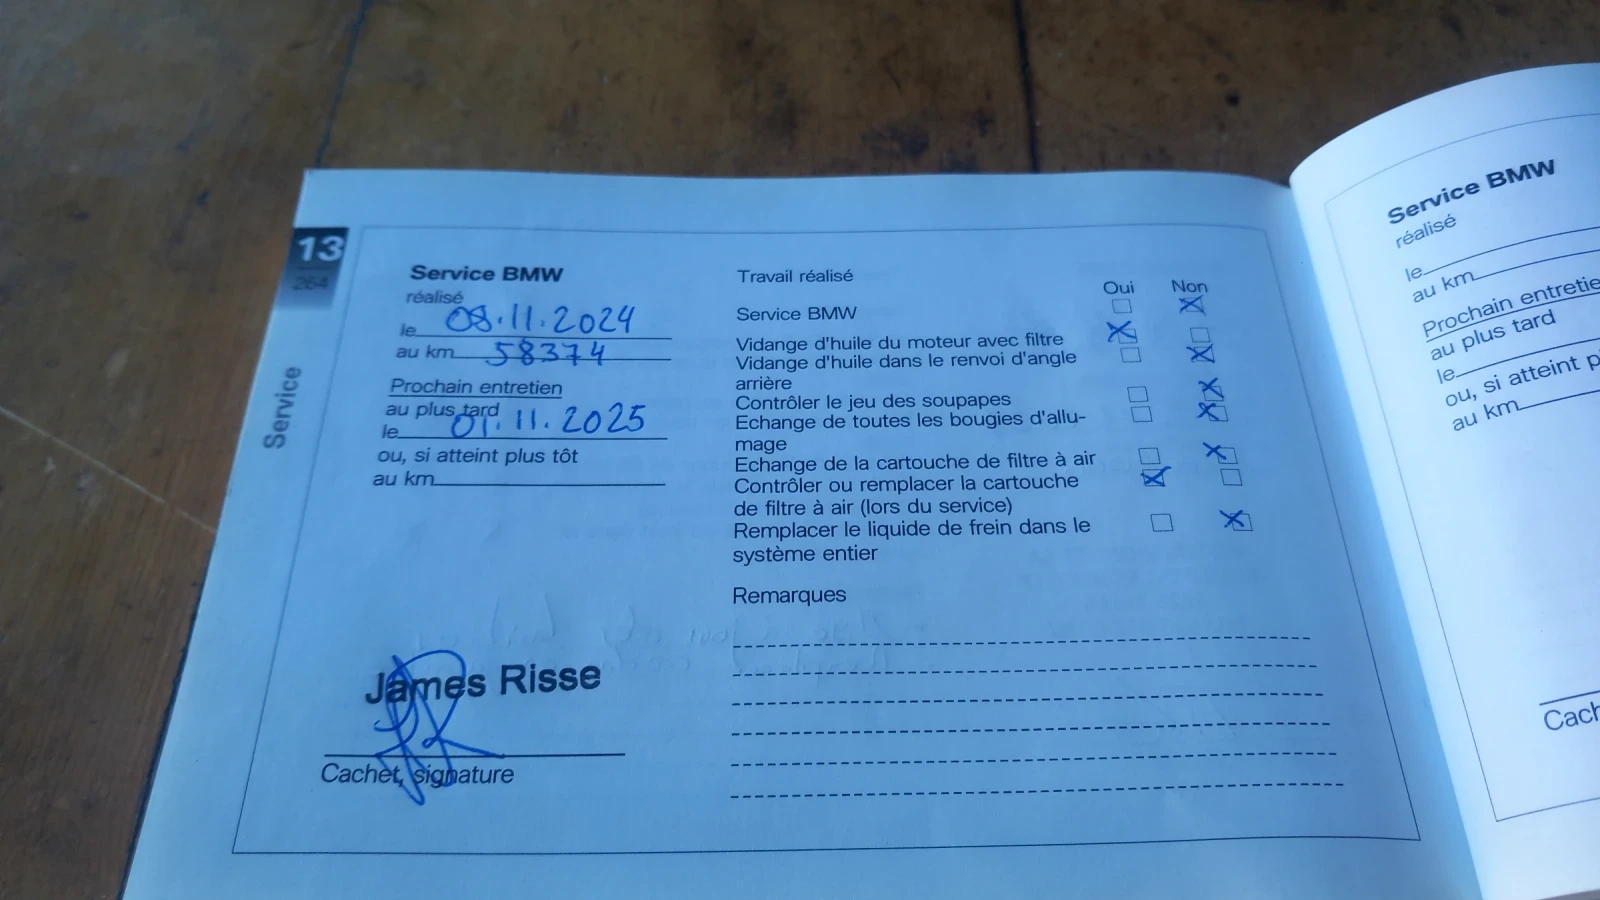 13
264
Service
Service BMW
réalisé
le 08.11.2024
au km 58374
Prochain entretien
au plus tard
le 01.11.2025
ou, si atteint plus tôt
au km
James Risse
Cachet, signature
Travail réalisé
Oui Non
Service BMW
Vidange d'huile du moteur avec filtre
Vidange d'huile dans le renvoi d'angle
arrière
Contrôler le jeu des soupapes
Echange de toutes les bougies d'allu-
mage
Echange de la cartouche de filtre à air
Contrôler ou remplacer la cartouche
de filtre à air (lors du service)
Remplacer le liquide de frein dans le
système entier
Remarques
Service BMW
réalisé
le
au km
Prochain entretie
au plus tard
le
ou, si atteint p
au km
Cach